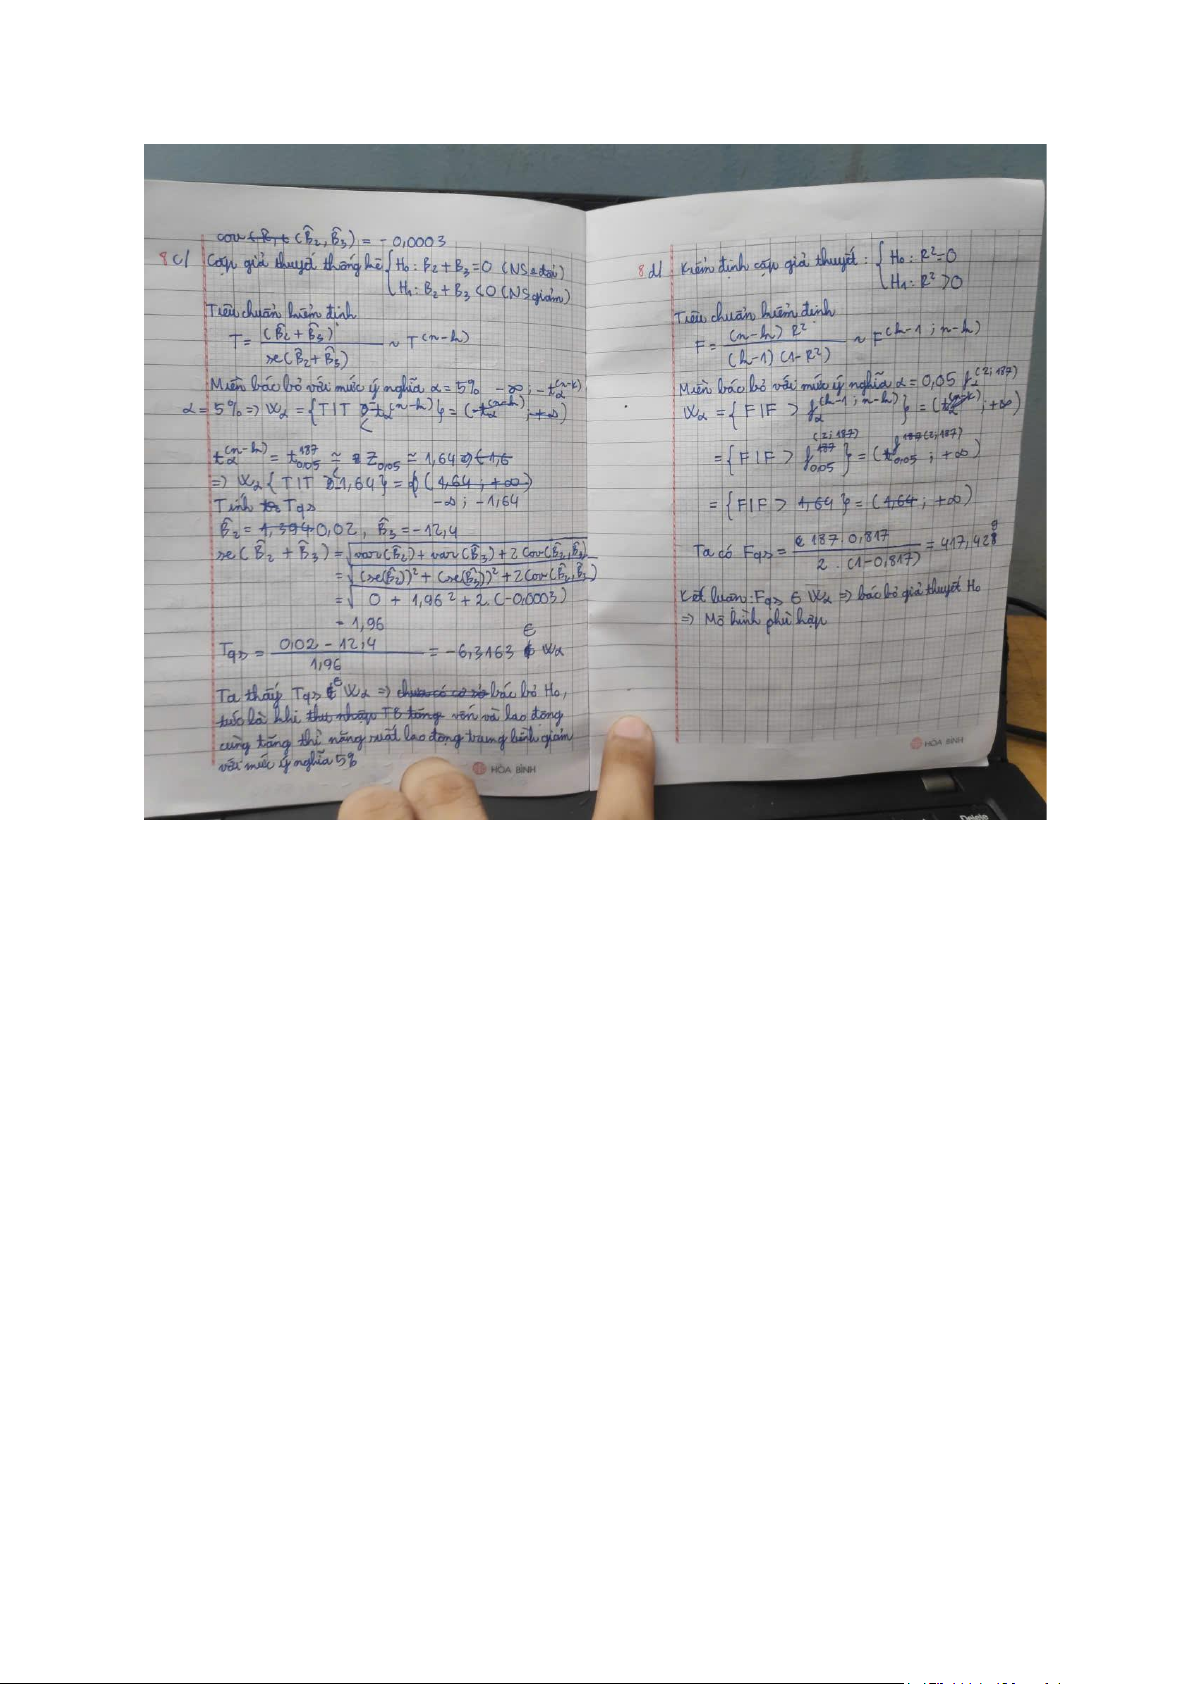 cov (B̂₂, B̂₃) = - 0,0003
8 c/ Cặp giả thuyết thống kê { H₀ : B₂ + B₃ = 0 (NS k đổi)
H₁ : B₂ + B₃ < 0 (NS giảm)
Tiêu chuẩn kiểm định
T = (B̂₂ + B̂₃) / se(B̂₂ + B̂₃) ~ T^(n-k)
Miền bác bỏ với mức ý nghĩa α = 5% -∞ ; -t_α^(n-k)
α = 5% => W_α = { T | T < -t_α^(n-k) } =
t_α^(n-k) = t_0,05^187 ≃ Z_0,05 ≃ 1,64
=> W_α { T | T < -1,64 } = (
Tính Tqs -∞ ; -1,64
B̂₂ = 0,02 , B̂₃ = -12,4
se(B̂₂ + B̂₃) = √(var(B̂₂) + var(B̂₃) + 2 Cov(B̂₂, B̂₃))
= √((se(B̂₂))² + (se(B̂₃))² + 2 Cov(B̂₂, B̂₃))
= √(0 + 1,96² + 2. (-0,0003))
= 1,96
Tqs = (0,02 - 12,4) / 1,96 = -6,3163 ∈ W_α
Ta thấy Tqs ∈ W_α => bác bỏ H₀,
tức là khi vốn và lao động
cùng tăng thì năng suất lao động trung bình giảm
với mức ý nghĩa 5%
HÒA BÌNH
8 d/ Kiểm định cặp giả thuyết : { H₀ : R² = 0
H₁ : R² > 0
Tiêu chuẩn kiểm định
F = (n-k) R² / (k-1) (1-R²) ~ F^(k-1 ; n-k)
Miền bác bỏ với mức ý nghĩa α = 0,05 f_α^(2;187)
W_α = { F | F > f_α^(k-1 ; n-k) } = ( ; +∞)
= { F | F > f_0,05^(2;187) } = (f_0,05^(2;187) ; +∞)
= { F | F > 1,64 } = (1,64 ; +∞)
Ta có Fqs = 187. 0,817 / 2 . (1-0,817) = 417,429
Kết luận : Fqs ∈ W_α => bác bỏ giả thuyết H₀
=> Mô hình phù hợp
HÒA BÌNH
Delete